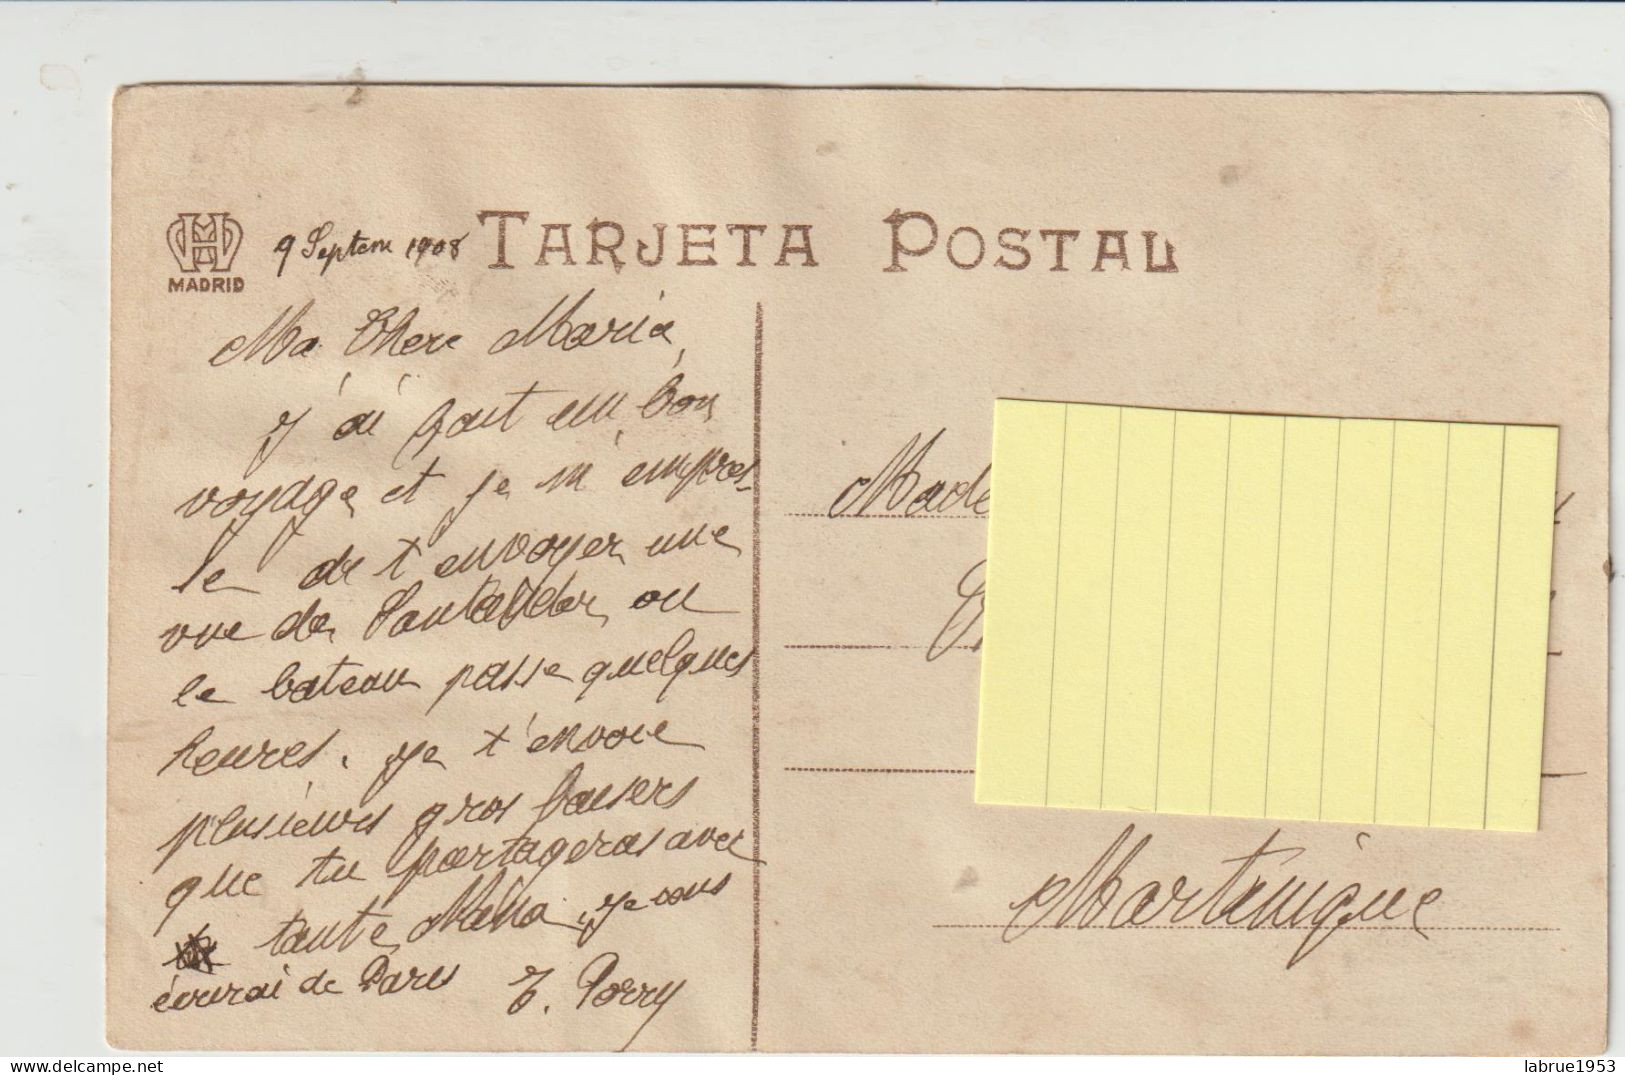 MADRID
9 Septem 1908
TARJETA POSTAL
Ma Chere Maria,
J'ai fait un bon
voyage et je m'empres-
se de t'envoyer une
vue de Santander, ou
le bateau passe quelques
heures. Je t'envoie
plusieurs gros baisers
que tu partageras avec
tante, je vous
écrirai de Paris
Porry
Martinique
delcampe.net
labrue1953